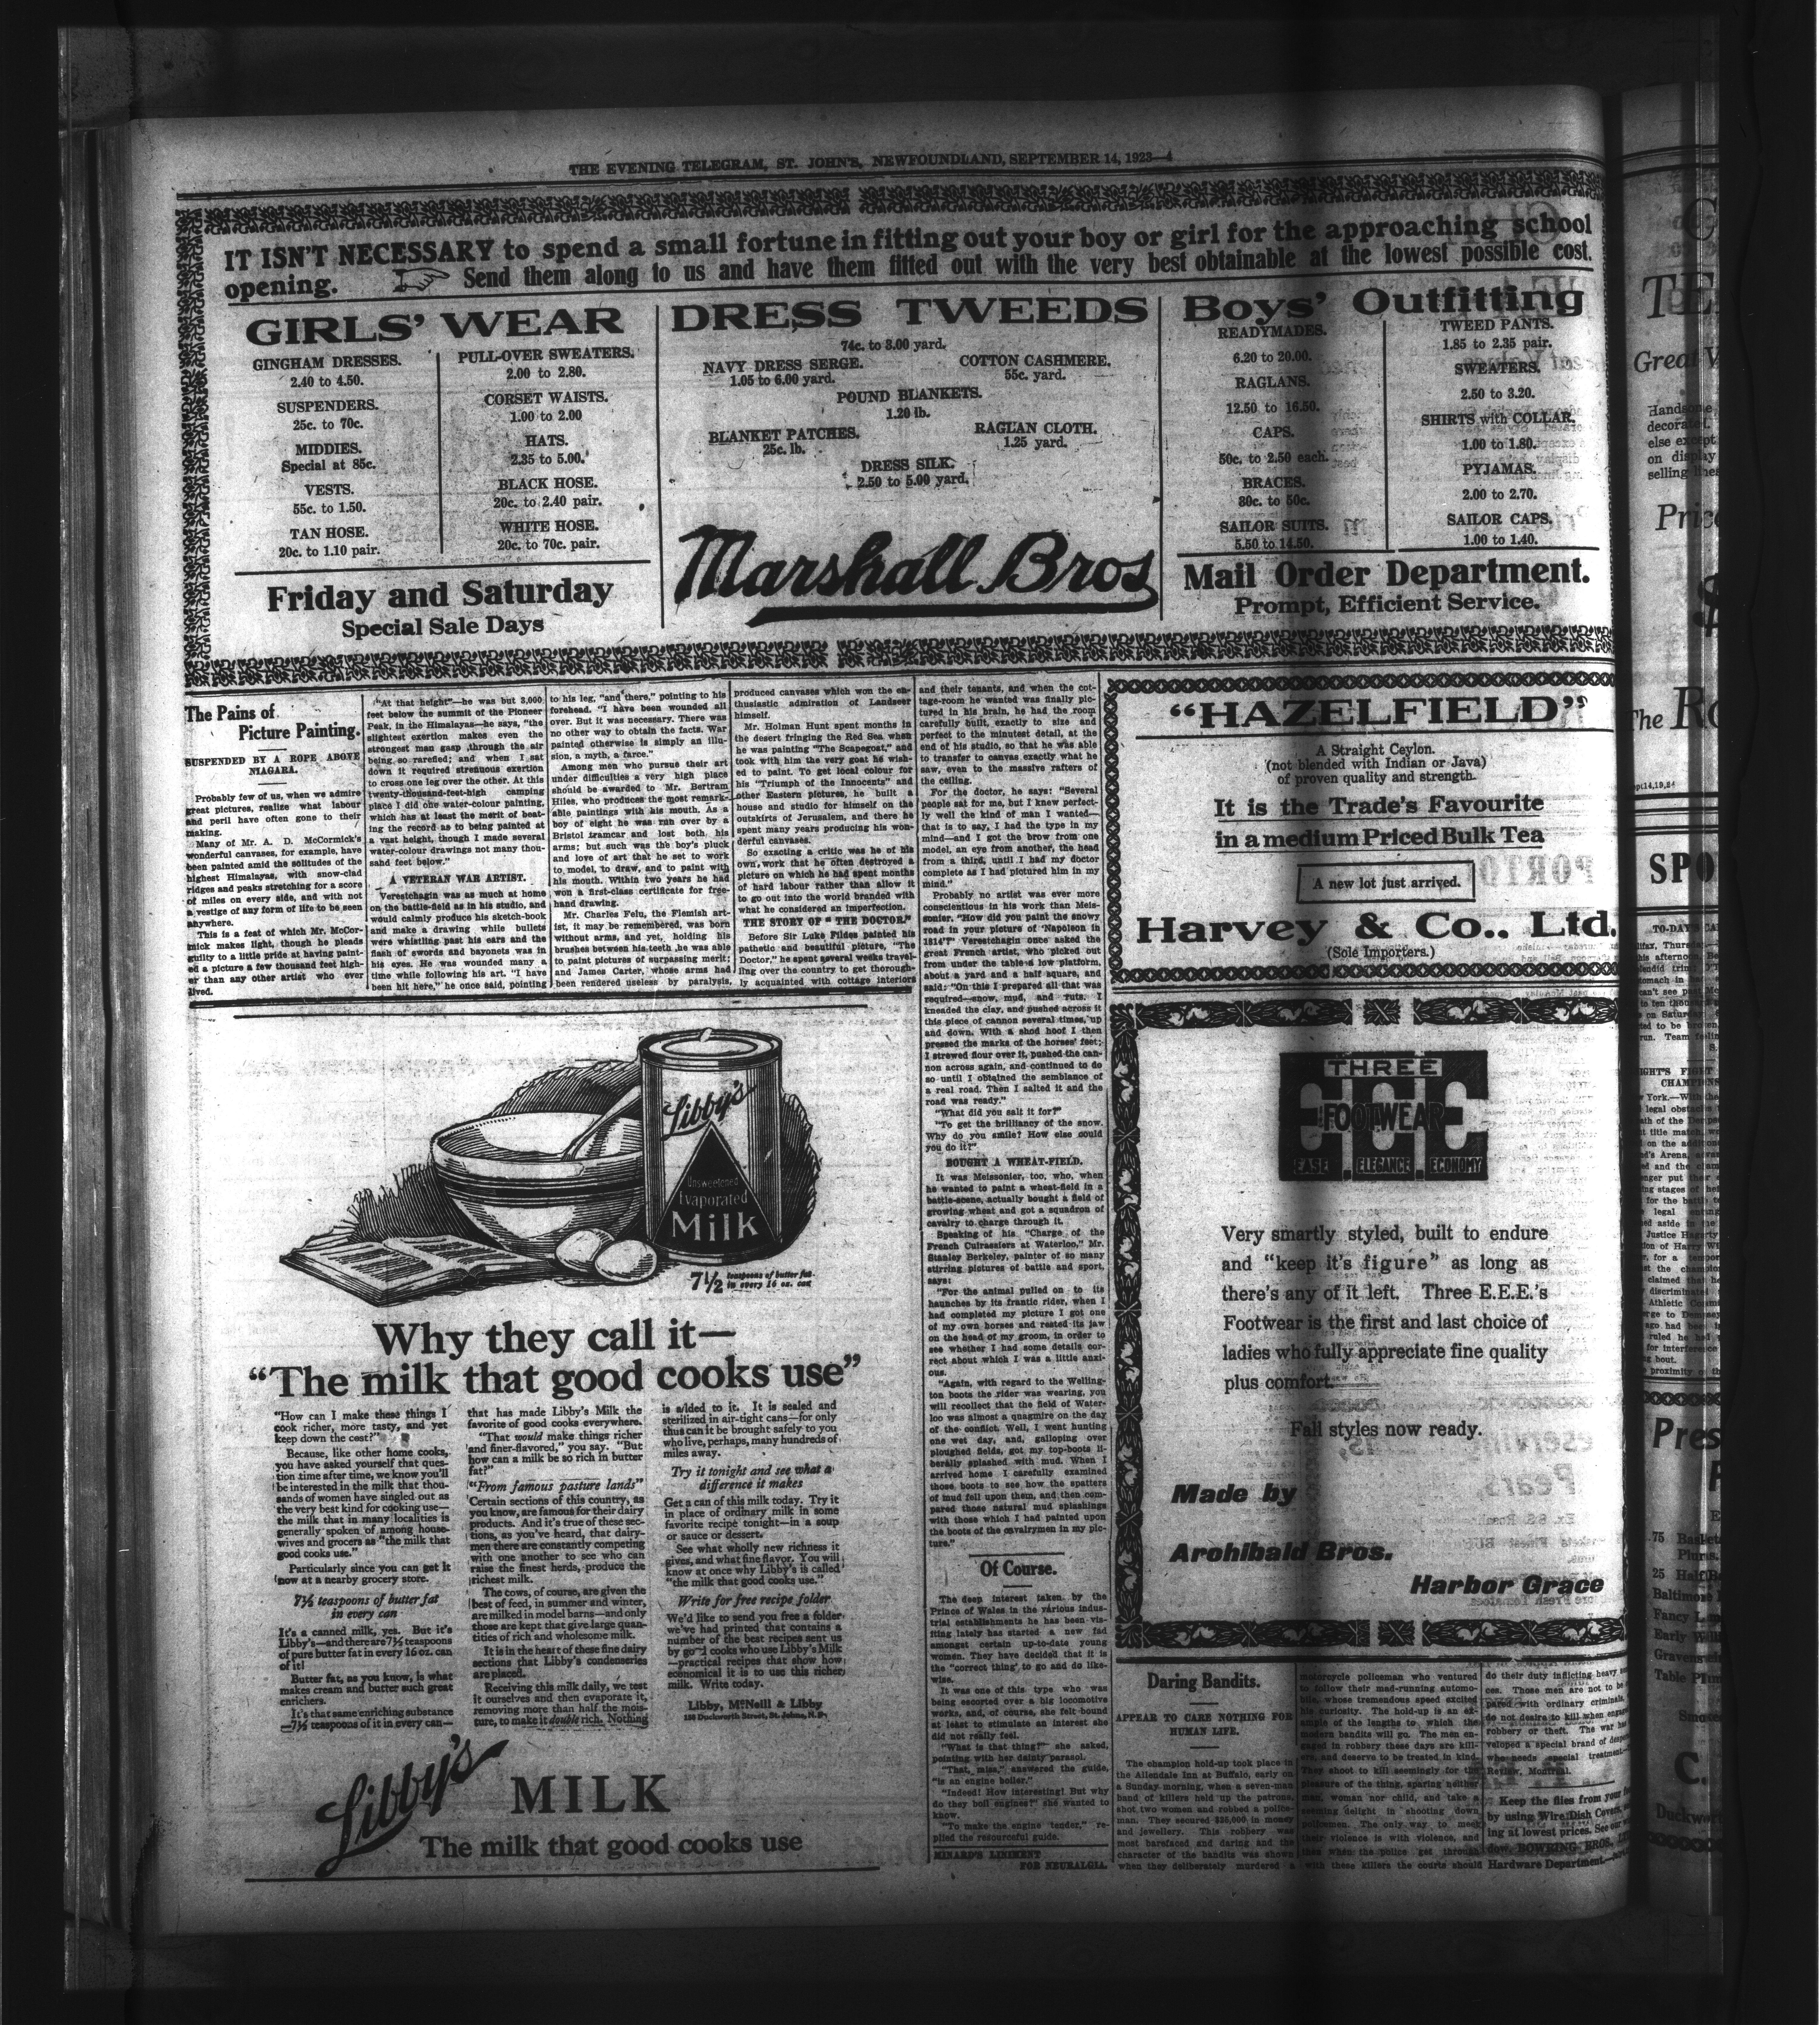 THE EVENING TELEGRAM, ST. JOHN'S, NEWFOUNDLAND, SEPTEMBER 14, 1923—4
IT ISN'T NECESSARY to spend a small fortune in fitting out your boy or girl for the approaching school
opening. Send them along to us and have them fitted out with the very best obtainable at the lowest possible cost.
GIRLS' WEAR
GINGHAM DRESSES.
2.40 to 4.50.
SUSPENDERS.
25c. to 70c.
MIDDIES.
Special at 85c.
VESTS.
55c. to 1.50.
TAN HOSE.
20c. to 1.10 pair.
PULL-OVER SWEATERS.
2.00 to 2.80.
CORSET WAISTS.
1.00 to 2.00
HATS.
2.35 to 5.00.
BLACK HOSE.
20c. to 2.40 pair.
WHITE HOSE.
20c. to 70c. pair.
Friday and Saturday
Special Sale Days
DRESS TWEEDS
74c. to 3.00 yard.
NAVY DRESS SERGE.
1.05 to 6.00 yard.
COTTON CASHMERE.
55c. yard.
POUND BLANKETS.
1.20 lb.
BLANKET PATCHES.
25c. lb.
RAGLAN CLOTH.
1.25 yard.
DRESS SILK.
2.50 to 5.00 yard.
Marshall Bros
Boys' Outfitting
READYMADES.
6.20 to 20.00.
RAGLANS.
12.50 to 16.50.
CAPS.
50c. to 2.50 each.
BRACES.
30c. to 50c.
SAILOR SUITS.
5.50 to 14.50.
TWEED PANTS.
1.85 to 2.35 pair.
SWEATERS.
2.50 to 3.20.
SHIRTS with COLLAR.
1.00 to 1.80.
PYJAMAS.
2.00 to 2.70.
SAILOR CAPS.
1.00 to 1.40.
Mail Order Department.
Prompt, Efficient Service.
The Pains of
Picture Painting.
SUSPENDED BY A ROPE ABOVE
NIAGARA.
Probably few of us, when we admire
great pictures, realize what labour
and peril have often gone to their
making.
Many of Mr. A. D. McCormick's
wonderful canvases, for example, have
been painted amid the solitudes of the
highest Himalayas, with snow-clad
ridges and peaks stretching for a score
of miles on every side, and with not
a vestige of any form of life to be seen
anywhere.
This is a feat of which Mr. McCor-
mick makes light, though he pleads
guilty to a little pride at having paint-
ed a picture a few thousand feet high-
er than any other artist who ever
lived.
"At that height"—he was but 3,000
feet below the summit of the Pioneer
Peak, in the Himalayas—he says, "the
slightest exertion makes even the
strongest man gasp, through the air
being so rarefied; and when I sat
down it required strenuous exertion
to cross one leg over the other. At this
twenty-thousand-feet-high camping
place I did one water-colour painting,
which has at least the merit of beat-
ing the record as to being painted at
a vast height, though I made several
water-colour drawings not many thou-
sand feet below."
A VETERAN WAR ARTIST.
Verestchagin was as much at home
on the battle-field as in his studio, and
would calmly produce his sketch-book
and make a drawing while bullets
were whistling past his ears and the
flash of swords and bayonets was in
his eyes. He was wounded many a
time while following his art. "I have
been hit here," he once said, pointing
to his leg, "and there," pointing to his
forehead. "I have been wounded all
over. But it was necessary. There was
no other way to obtain the facts. War
painted otherwise is simply an illu-
sion, a myth, a farce."
Among men who pursue their art
under difficulties a very high place
should be awarded to Mr. Bertram
Hiles, who produces the most remark-
able paintings with his mouth. As a
boy of eight he was run over by a
Bristol tramcar and lost both his
arms; but such was the boy's pluck
and love of art that he set to work
to model, to draw, and to paint with
his mouth. Within two years he had
won a first-class certificate for free-
hand drawing.
Mr. Charles Felu, the Flemish art-
ist, it may be remembered, was born
without arms, and yet, holding his
brushes between his teeth he was able
to paint pictures of surpassing merit;
and James Carter, whose arms had
been rendered useless by paralysis,
produced canvases which won the en-
thusiastic admiration of Landseer
himself.
Mr. Holman Hunt spent months in
the desert fringing the Red Sea when
he was painting "The Scapegoat," and
took with him the very goat he wish-
ed to paint. To get local colour for
his "Triumph of the Innocents" and
other Eastern pictures, he built a
house and studio for himself on the
outskirts of Jerusalem, and there he
spent many years producing his won-
derful canvases.
So exacting a critic was he of his
own work that he often destroyed a
picture on which he had spent months
of hard labour rather than allow it
to go out into the world branded with
what he considered an imperfection.
THE STORY OF "THE DOCTOR."
Before Sir Luke Fildes painted his
pathetic and beautiful picture, "The
Doctor," he spent several weeks travel-
ling over the country to get thorough-
ly acquainted with cottage interiors
and their tenants, and when the cot-
tage-room he wanted was finally pic-
tured in his brain, he had the room
carefully built, exactly to size and
perfect to the minutest detail, at the
end of his studio, so that he was able
to transfer to canvas exactly what he
saw, even to the massive rafters of
the ceiling.
For the doctor, he says: "Several
people sat for me, but I knew perfect-
ly well the kind of man I wanted—
that is to say, I had the type in my
mind—and I got the brow from one
model, an eye from another, the head
from a third, until I had my doctor
complete as I had pictured him in my
mind."
Probably no artist was ever more
conscientious in his work than Meis-
sonier. "How did you paint the snowy
road in your picture of 'Napoleon in
1814'?" Verestchagin once asked the
great French artist, who picked out
from under the table a low platform,
about a yard and a half square, and
said: "On this I prepared all that was
required—snow, mud, and ruts. I
kneaded the clay, and pushed across it
this piece of cannon several times, up
and down. With a shod hoof I then
pressed the marks of the horses' feet;
I strewed flour over it, pushed the can-
non across again, and continued to do
so until I obtained the semblance of
a real road. Then I salted it and the
road was ready."
"What did you salt it for?"
"To get the brilliancy of the snow.
Why do you smile? How else could
you do it?"
BOUGHT A WHEAT-FIELD.
It was Meissonier, too, who, when
he wanted to paint a wheat-field in a
battle-scene, actually bought a field of
growing wheat and got a squadron of
cavalry to charge through it.
Speaking of his "Charge of the
French Cuirassiers at Waterloo," Mr.
Stanley Berkeley, painter of so many
stirring pictures of battle and sport,
says:
"For the animal pulled on to its
haunches by its frantic rider, when I
had completed my picture I got one
of my own horses and rested its jaw
on the head of my groom, in order to
see whether I had some details cor-
rect about which I was a little anxi-
ous.
"Again, with regard to the Welling-
ton boots the rider was wearing, you
will recollect that the field of Water-
loo was almost a quagmire on the day
of the conflict. Well, I went hunting
one wet day, and, galloping over
ploughed fields, got my top-boots li-
berally splashed with mud. When I
arrived home I carefully examined
those boots to see how the spatters
of mud fell upon them, and then com-
pared those natural mud splashings
with those which I had painted upon
the boots of the cavalrymen in my pic-
ture."
Of Course.
The deep interest taken by the
Prince of Wales in the various indus-
trial establishments he has been vis-
iting lately has started a new fad
amongst certain up-to-date young
women. They have decided that it is
the "correct thing" to go and do like-
wise.
It was one of this type who was
being escorted over a big locomotive
works, and, of course, she felt bound
at least to stimulate an interest she
did not really feel.
"What is that thing?" she asked,
pointing with her dainty parasol.
"That, miss," answered the guide,
"is an engine boiler."
"Indeed! How interesting! But why
do they boil engines?" she wanted to
know.
"To make the engine tender," re-
plied the resourceful guide.
MINARD'S LINIMENT
FOR NEURALGIA.
"HAZELFIELD"
A Straight Ceylon.
(not blended with Indian or Java)
of proven quality and strength.
It is the Trade's Favourite
in a medium Priced Bulk Tea
A new lot just arrived.
Harvey & Co.. Ltd.
(Sole Importers.)
THREE
EEE
FOOTWEAR
EASE ELEGANCE ECONOMY
Very smartly styled, built to endure
and "keep it's figure" as long as
there's any of it left. Three E.E.E.'s
Footwear is the first and last choice of
ladies who fully appreciate fine quality
plus comfort.
Fall styles now ready.
Made by
Archibald Bros.
Harbor Grace
Libby's
Unsweetened
Evaporated
Milk
7½ teaspoons of butter fat
in every 16 oz. can
Why they call it—
"The milk that good cooks use"
"How can I make these things I
cook richer, more tasty, and yet
keep down the cost?"
Because, like other home cooks,
you have asked yourself that ques-
tion time after time, we know you'll
be interested in the milk that thou-
sands of women have singled out as
the very best kind for cooking use—
the milk that in many localities is
generally spoken of among house-
wives and grocers as "the milk that
good cooks use."
Particularly since you can get it
now at a nearby grocery store.
7½ teaspoons of butter fat
in every can
It's a canned milk, yes. But it's
Libby's—and there are 7½ teaspoons
of pure butter fat in every 16 oz. can
of it!
Butter fat, as you know, is what
makes cream and butter such great
enrichers.
It's that same enriching substance
—7½ teaspoons of it in every can—
that has made Libby's Milk the
favorite of good cooks everywhere.
"That would make things richer
and finer-flavored," you say. "But
how can a milk be so rich in butter
fat?"
"From famous pasture lands"
Certain sections of this country, as
you know, are famous for their dairy
products. And it's true of these sec-
tions, as you've heard, that dairy-
men there are constantly competing
with one another to see who can
raise the finest herds, produce the
richest milk.
The cows, of course, are given the
best of feed, in summer and winter,
are milked in model barns—and only
those are kept that give large quan-
tities of rich and wholesome milk.
It is in the heart of these fine dairy
sections that Libby's condenseries
are placed.
Receiving this milk daily, we test
it ourselves and then evaporate it,
removing more than half the mois-
ture, to make it double rich. Nothing
is added to it. It is sealed and
sterilized in air-tight cans—for only
thus can it be brought safely to you
who live, perhaps, many hundreds of
miles away.
Try it tonight and see what a
difference it makes
Get a can of this milk today. Try it
in place of ordinary milk in some
favorite recipe tonight—in a soup
or sauce or dessert.
See what wholly new richness it
gives, and what fine flavor. You will
know at once why Libby's is called
"the milk that good cooks use."
Write for free recipe folder
We'd like to send you free a folder
we've had printed that contains a
number of the best recipes sent us
by good cooks who use Libby's Milk
—practical recipes that show how
economical it is to use this richer
milk. Write today.
Libby, McNeill & Libby
Duckworth Street, St. Johns, N. F.
Libby's MILK
The milk that good cooks use
Daring Bandits.
APPEAR TO CARE NOTHING FOR
HUMAN LIFE.
The champion hold-up took place in
the Allendale Inn at Buffalo, early on
a Sunday morning, when a seven-man
band of killers held up the patrons,
shot two women and robbed a police-
man. They secured $35,000 in money
and jewellery. This robbery was
most barefaced and daring and the
character of the bandits was shown
when they deliberately murdered a
motorcycle policeman who ventured
to follow their mad-running automo-
bile, whose tremendous speed excited
his curiosity. The hold-up is an ex-
ample of the lengths to which the
modern bandits will go. The men en-
gaged in robbery these days are kill-
ers, and deserve to be treated in kind.
They shoot to kill seemingly for the
pleasure of the thing, sparing neither
man, woman nor child, and take a
seeming delight in shooting down
policemen. The only way to meet
their violence is with violence, and
then when the police get through
with these killers the courts should
do their duty inflicting heavy
ces. Those men are not to be
pared with ordinary criminals,
do not desire to kill when engaged
robbery or theft. The war has
veloped a special brand of
who needs special treatment.—
Review, Montreal.
Keep the flies from your
by using Wire Dish Covers,
ing at lowest prices. See our
dow. BOWRING BROS.,
Hardware Department.